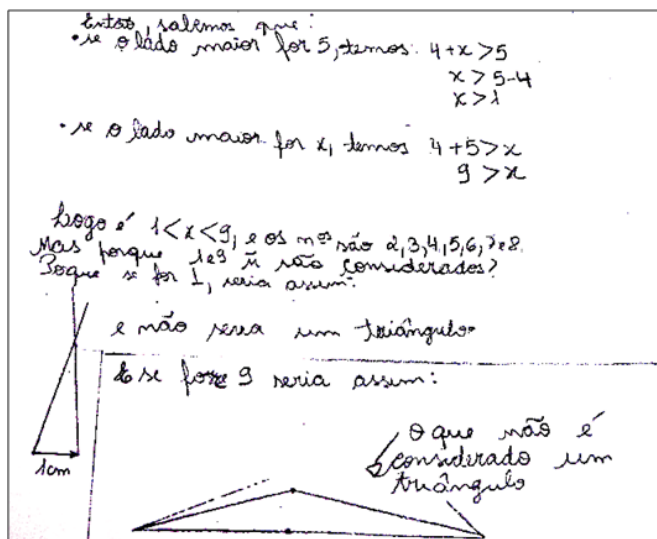 Então, sabemos que:
• se o lado maior for 5, temos: 4+x>5
x > 5-4
x>1
• se o lado maior for x, temos 4+5>x
9 >x
Logo é 1<x<9, e os nos são 2,3,4,5,6,7e8.
Mas porque 1e9 ñ são considerados?
Poque se for 1, seria assim:
e não seria um triângulo.
E se fosse 9 seria assim:
1cm
O que não é
considerado um
triângulo